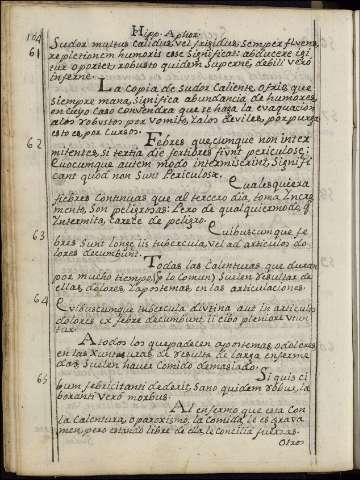 104 Hipp. Aphor.
61 Sudor multus calidus, vel frigidus semper fluens,
repletionem humoris esse significat: abducere igi
tur oportet, robusto quidem supernè, debili verò
inferne.
La copia de sudor caliente, ò frio, que
siempre mana, significa abundancia de humores,
en cuyo caso convendrà que se haga la evaquacion
a los robustos por vomito, y a los deviles, por purga
esto es, por cursos.
62 Febres quæcumque non inter
mitentes, si tertia die fortiores fiunt periculosæ;
Quocumque autem modo intermiserint, signifi
cant quòd non sunt periculosæ.
Qualesquiera
fiebres continuas que al tercero dia, toma incre
mento, son peligrosas: Pero de qualquier modo, q.
intermita, carece de peligro.
63 Quibuscumque fe
bres sunt longæ iis tubercula, vel ad articulos do
lores decumbunt.
Todas las calenturas que duran
por mucho tiempo, (por lo comun) suelen resultar de
ellas, dolores, y apostemas en las articulaciones.
64 Quibuscumque tubercula diutina aut in articulos
dolores ex febre decumbunt, ii cibo pleniore utun
tur.
A todos los que padecen apostemas, ò dolores
en las xunturas, de resulta de larga enferme
dad, suelen haver comido demasiado.
65 Si quis ci
bum febricitanti dederit, sano quidem robur, la
boranti verò morbus.
Al enfermo que esta con
la calentura, ò paroxismo, la comida, le es grava
men, pero estando libre de ella le concilia fuerzas.
Otro